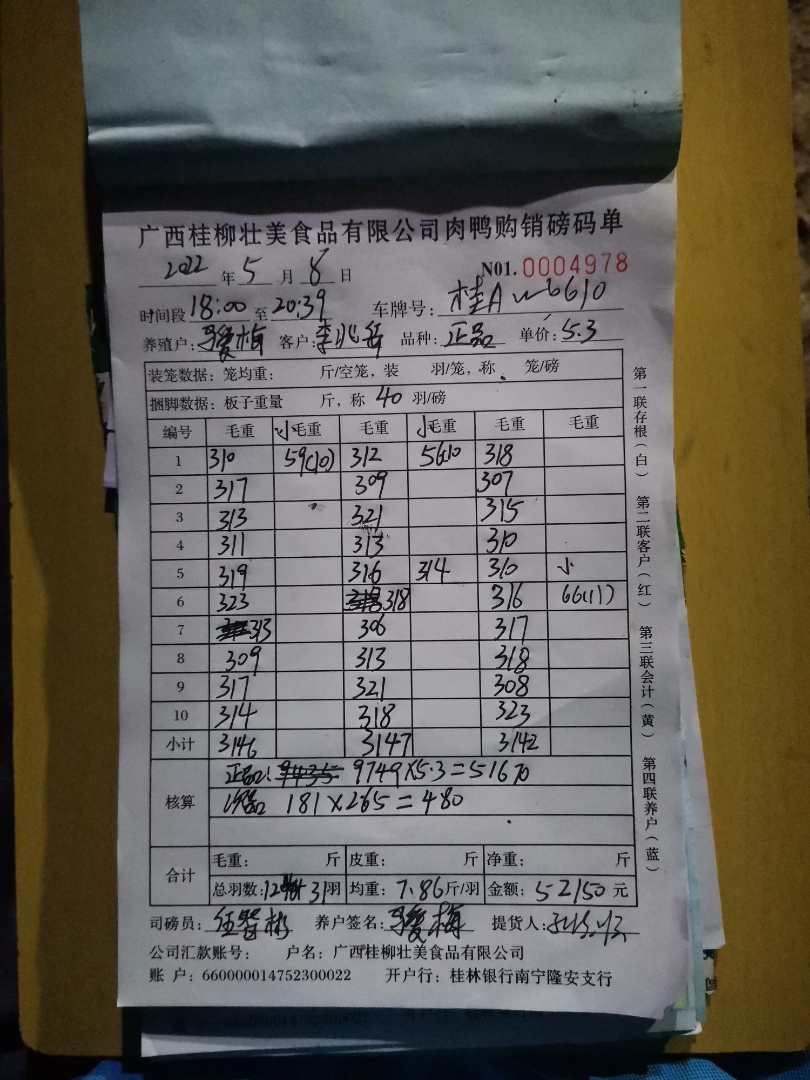 广西桂柳壮美食品有限公司肉鸭购销磅码单
2022 年 5 月 8 日 N01. 0004978
时间段 18:00 至 20:39 车牌号: 桂A 6610
养殖户: 梅 客户: 李兆 品种: 正品 单价: 5.3
装笼数据: 笼均重: 斤/空笼, 装 羽/笼, 称 笼/磅
捆脚数据: 板子重量 斤, 称 40 羽/磅
编号 毛重 小毛重 毛重 小毛重 毛重 毛重
1 310 59(10) 312 56(10 318
2 317 309 307
3 313 321 315
4 311 313 310
5 319 316 314 310 小
6 323 318 316 66(11)
7 313 306 317
8 309 313 318
9 317 321 308
10 314 318 323
小计 3146 3147 3142
核算
正品: 9749×5.3=51670
次品 181×265=480
合计
毛重: 斤 皮重: 斤 净重: 斤
总羽数: 12 31羽 均重: 7.86斤/羽 金额: 52150 元
司磅员: 养户签名: 梅 提货人:
公司汇款账号: 户名: 广西桂柳壮美食品有限公司
账 户: 660000014752300022 开户行: 桂林银行南宁隆安支行
第一联存根(白) 第二联客户(红) 第三联会计(黄) 第四联养户(蓝)